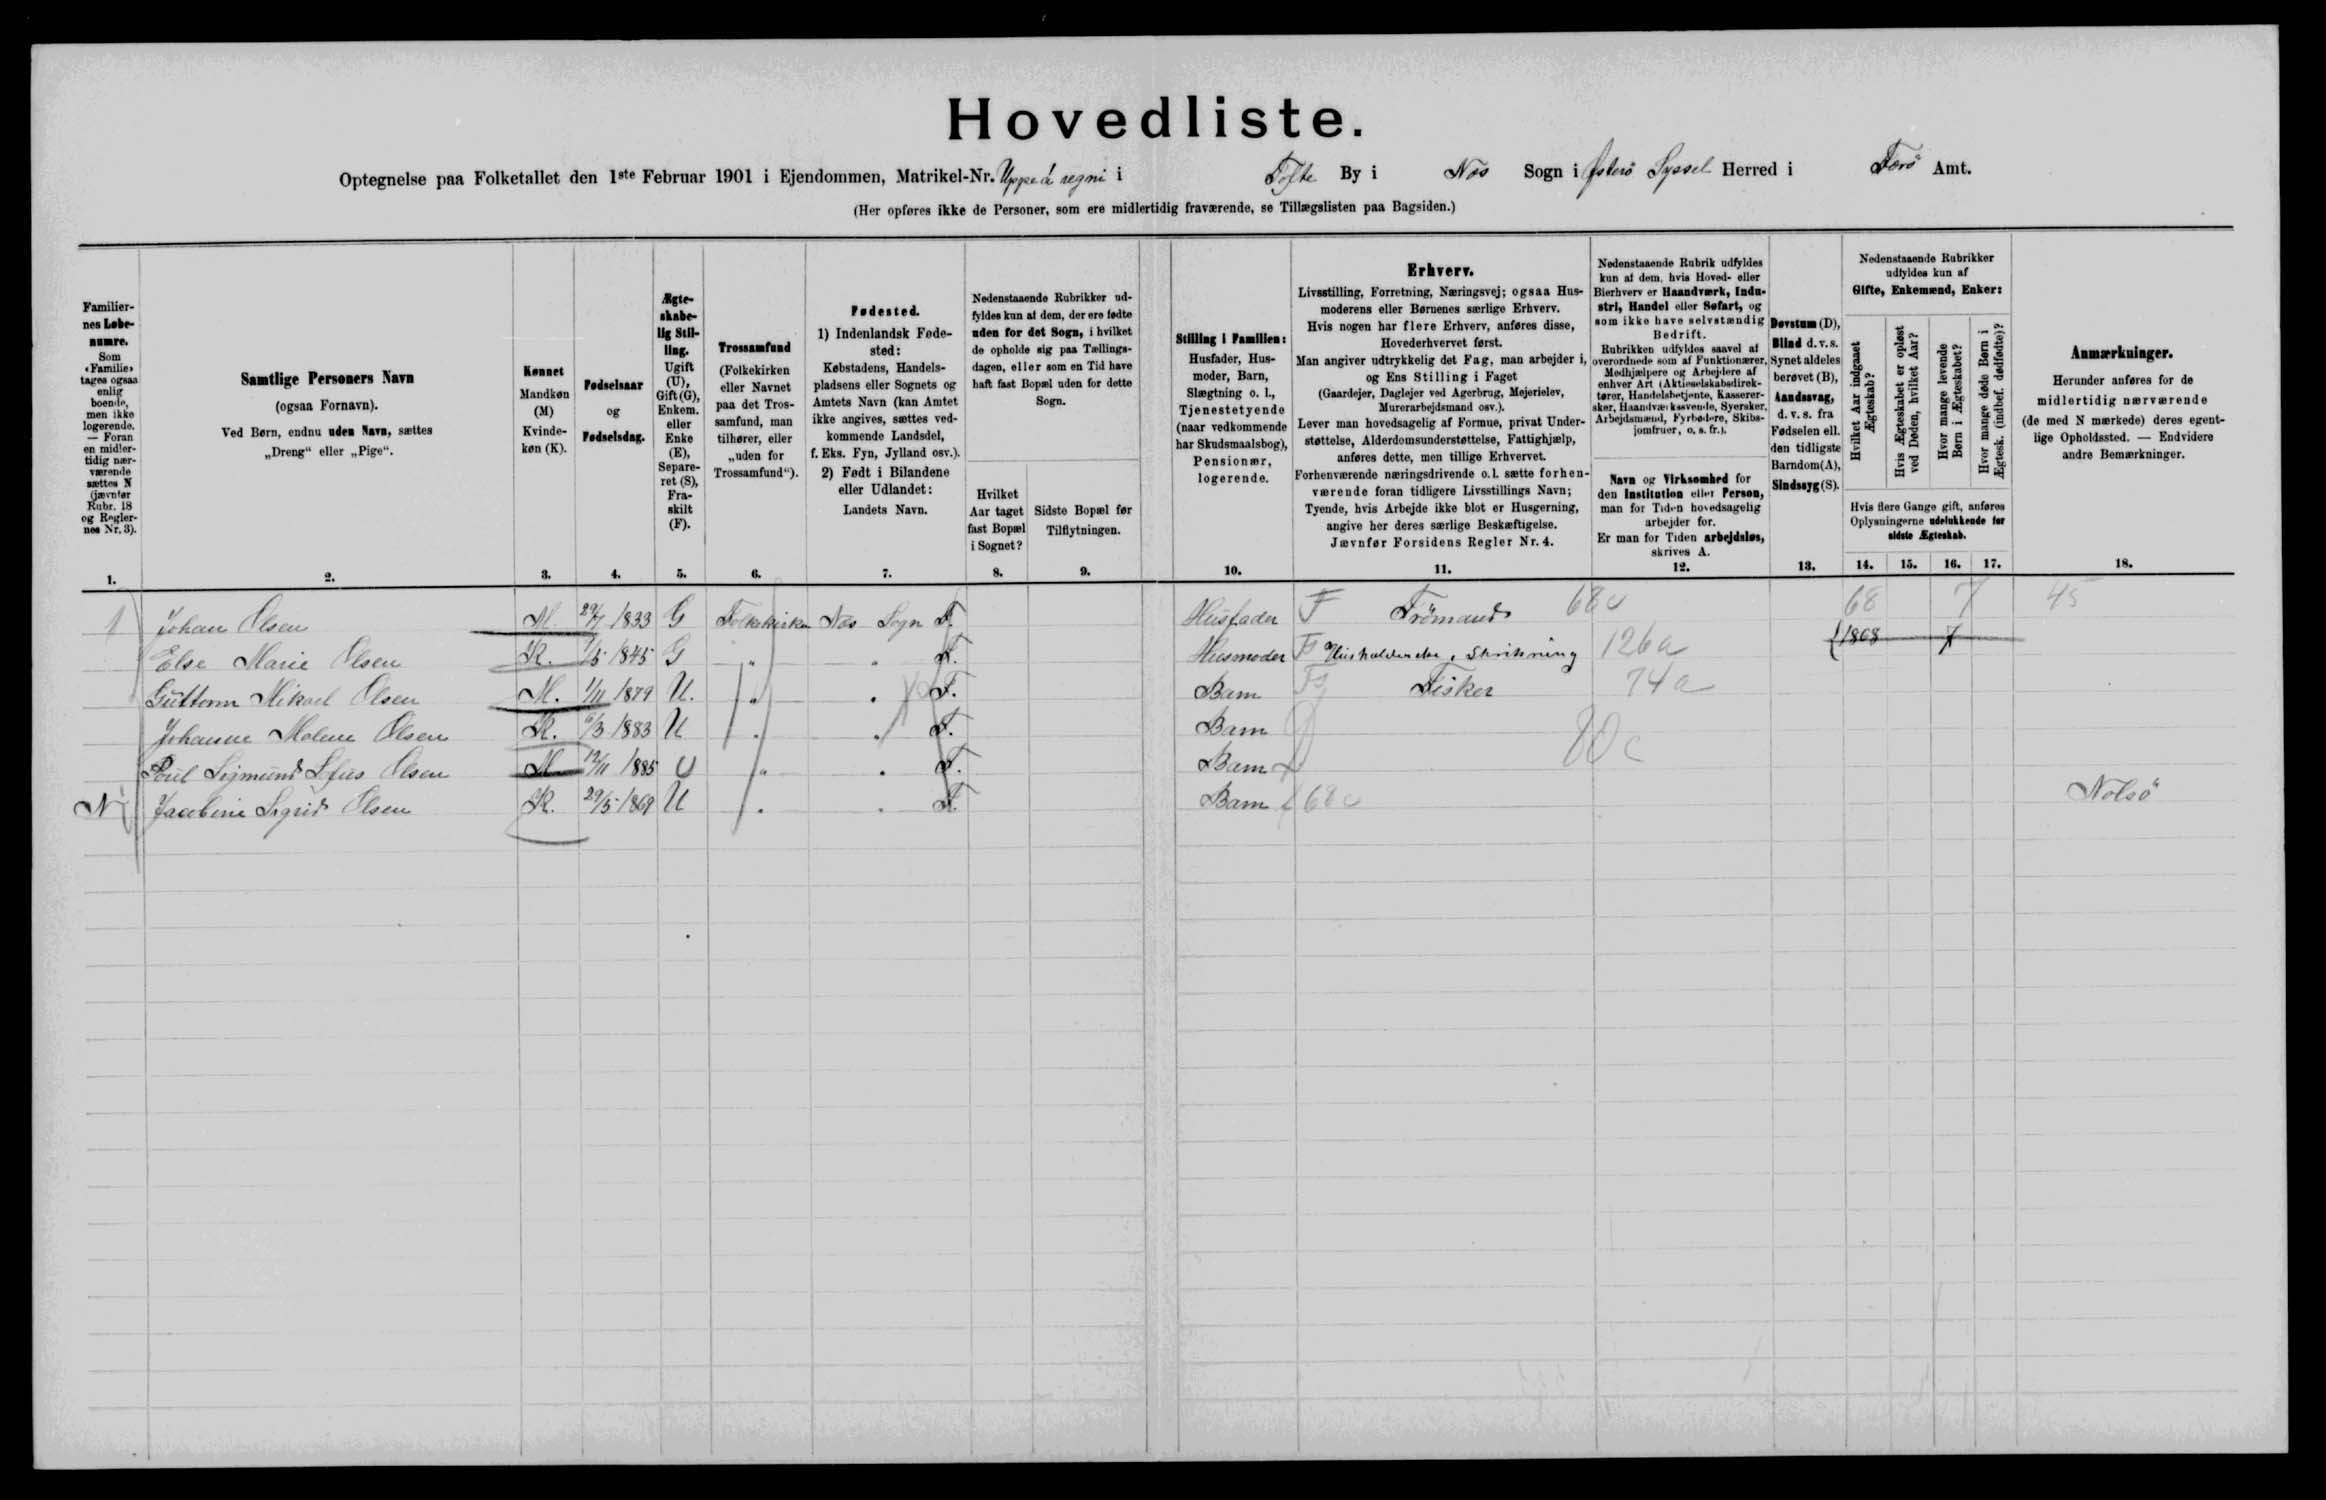 Hovedliste.
Optegnelse paa Folketallet den 1ste Februar 1901 i Ejendommen, Matrikel-Nr. Uppe á regni i Tofte By i Næs Sogn i Østerö Syssel Herred i Færö Amt.
(Her opføres ikke de Personer, som ere midlertidig fraværende, se Tillægslisten paa Bagsiden.)
Familiernes Løbenumre.
Som «Familie» tages ogsaa enlig boende, men ikke logerende. — Foran en midlertidig nærværende sættes N (jævnfør Rubr. 18 og Reglernes Nr. 3).
1.
Samtlige Personers Navn
(ogsaa Fornavn).
Ved Børn, endnu uden Navn, sættes
„Dreng“ eller „Pige“.
2.
Kønnet
Mandkøn (M)
Kvindekøn (K).
3.
Fødselsaar
og
Fødselsdag.
4.
Ægteskabelig Stilling.
Ugift (U), Gift (G), Enkem. eller Enke (E), Separeret (S), Fraskilt (F).
5.
Trossamfund
(Folkekirken eller Navnet paa det Trossamfund, man tilhører, eller „uden for Trossamfund“).
6.
Fødested.
1) Indenlandsk Fødested:
Købstadens, Handelspladsens eller Sognets og Amtets Navn (kan Amtet ikke angives, sættes vedkommende Landsdel, f. Eks. Fyn, Jylland osv.).
2) Født i Bilandene eller Udlandet:
Landets Navn.
7.
Nedenstaaende Rubrikker udfyldes kun af dem, der ere fødte uden for det Sogn, i hvilket de opholde sig paa Tællingsdagen, eller som en Tid have haft fast Bopæl uden for dette Sogn.
Hvilket Aar taget fast Bopæl i Sognet?
8.
Sidste Bopæl før Tilflytningen.
9.
Stilling i Familien:
Husfader, Husmoder, Barn, Slægtning o. l., Tjenestetyende (naar vedkommende har Skudsmaalsbog), Pensionær, logerende.
10.
Erhverv.
Livsstilling, Forretning, Næringsvej; ogsaa Husmoderens eller Børnenes særlige Erhverv.
Hvis nogen har flere Erhverv, anføres disse, Hovederhvervet først.
Man angiver udtrykkelig det Fag, man arbejder i, og Ens Stilling i Faget
(Gaardejer, Daglejer ved Agerbrug, Mejerielev, Murerarbejdsmand osv.).
Lever man hovedsagelig af Formue, privat Understøttelse, Alderdomsunderstøttelse, Fattighjælp, anføres dette, men tillige Erhvervet.
Forhenværende næringsdrivende o. l. sætte forhenværende foran tidligere Livsstillings Navn;
Tyende, hvis Arbejde ikke blot er Husgerning, angive her deres særlige Beskæftigelse.
Jævnfør Forsidens Regler Nr. 4.
11.
Nedenstaaende Rubrik udfyldes kun af dem, hvis Hoved- eller Bierhverv er Haandværk, Industri, Handel eller Søfart, og som ikke have selvstændig Bedrift.
Rubrikken udfyldes saavel af overordnede som af Funktionærer, Medhjælpere og Arbejdere af enhver Art (Aktieselskabsdirektører, Handelsbetjente, Kasserersker, Haandværkssvende, Syersker, Arbejdsmænd, Fyrbødere, Skibsjomfruer, o. s. fr.).
Navn og Virksomhed for den Institution eller Person, man for Tiden hovedsagelig arbejder for.
Er man for Tiden arbejdsløs, skrives A.
12.
Døvstum (D), Blind d. v. s. Synet aldeles berøvet (B), Aandssvag, d. v. s. fra Fødselen ell. den tidligste Barndom (A), Sindssyg (S).
13.
Nedenstaaende Rubrikker udfyldes kun af
Gifte, Enkemænd, Enker:
Hvilket Aar indgaaet Ægteskab?
Hvis Ægteskabet er opløst ved Døden, hvilket Aar?
Hvor mange levende Børn i Ægteskabet?
Hvor mange døde Børn i Ægtesk. (indbef. dødfødte)?
Hvis flere Gange gift, anføres Oplysningerne udelukkende for sidste Ægteskab.
14. 15. 16. 17.
Anmærkninger.
Herunder anføres for de midlertidig nærværende (de med N mærkede) deres egentlige Opholdssted. — Endvidere andre Bemærkninger.
18.
1 Johan Olsen M. 29/7 1833 G Folkekirken Næs Sogn F. Husfader F Trömand 68c 68 7 45
Else Marie Olsen K. 1/5 1845 G " " F. Husmoder Husholdende, Strikning 126a 1868 7
Guttorm Mikael Olsen M. 1/11 1879 U. " " F. Barn Fisker 74a
Johanne Malene Olsen K. 6/3 1883 U " " F. Barn
Poul Sigmund Sofus Olsen M. 12/11 1885 U " " F. Barn
N Jacobine Sigrid Olsen K. 29/5 1869 U " " F. Barn 68c Nolsö